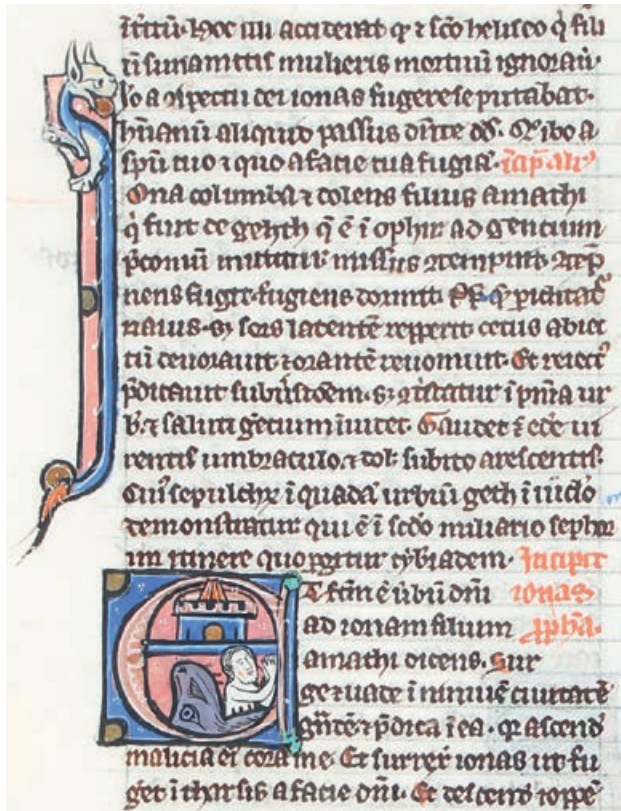 Hoc acciderat et sc̄o heliseo q̇ fili
ū sunamitis mulieris mortuū
a ɔspectu dei ionas fugere se putabat.
hūanū aliquid passus ds̄. ibo a
spū tuo ⁊ quo a facie tua fugiā. īcip̄ ali᾿
Iona columba ⁊ dolens filius amathi
q̇ fuit de gehth q̄ ē ī ophir ad gentium
p̄coniū mittitur. missus ɔtempnit ɔtēp̄
nens fugit. fugiens dormit.
nauis. sꝫ sors latentē repperit cetus abiec
tū deuorauit ⁊ orantē reuomuit. Et reiect᾿
p̄dicauit sꝫ ī p̄ma ur
b. ⁊ saluti gētium īuidet. Gaudet ī edē ui
rentis umbraculo. ⁊ dol subito arescentis.
Cui᾿ sepulchr̄ ī quadā urbiū geth ī uiclo
demonstratur qui ē ī sc̄do miliario sephor
im itinere quo ꝑgitur tybriadem. Incipit
Et fctm̄ ē ūbū dn̄i ionas
ad ionam filium ꝓph̄a.
amathi dicens. Sur
ge ⁊ uade ī niniuē ciuitatē
⁊ p̄dica ī ea. ascend
malicia ei᾿ corā me. Et surrex̄ ionas ut fu
get ī tharsis a facie dn̄i. Et descend ioppē